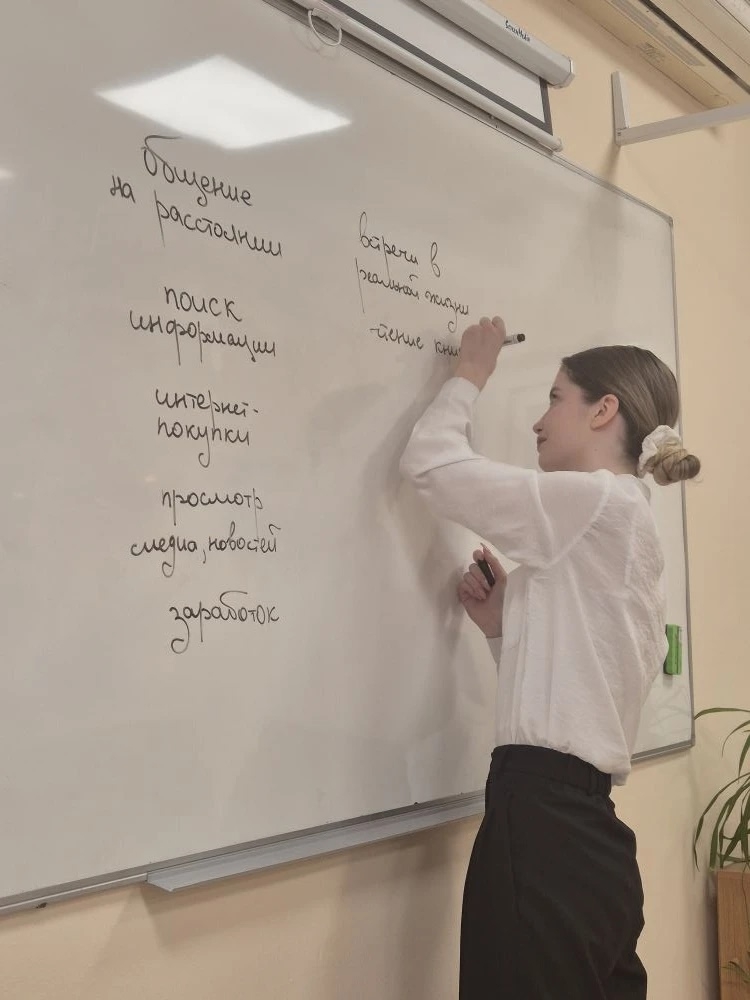 общение
на расстоянии
поиск
информации
интернет-
покупки
просмотр
медиа, новостей
заработок
встречи в
реальной жизни
чтение